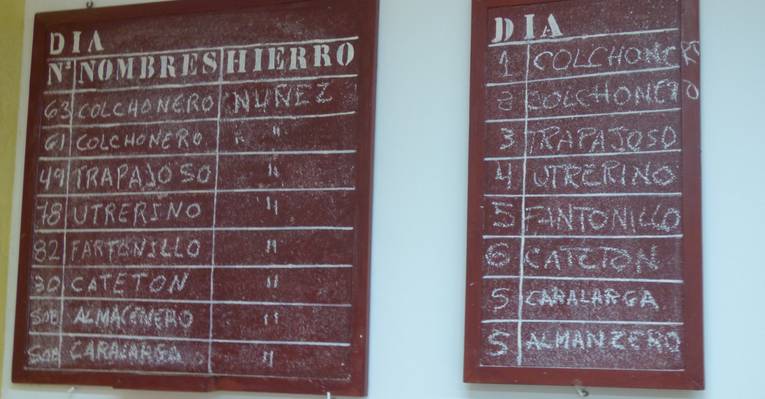 DIA
Nº NOMBRES HIERRO
63 COLCHONERO NUÑEZ
61 COLCHONERO "
49 TRAPAJOSO "
78 UTRERINO "
82 FARTONILLO "
30 CATETON "
SOB ALMACENERO "
SOB CARALARGA "
DIA
1 COLCHONERO
2 COLCHONERO
3 TRAPAJOSO
4 UTRERINO
5 FANTONILLO
6 CATETON
S CARALARGA
S ALMANZERO